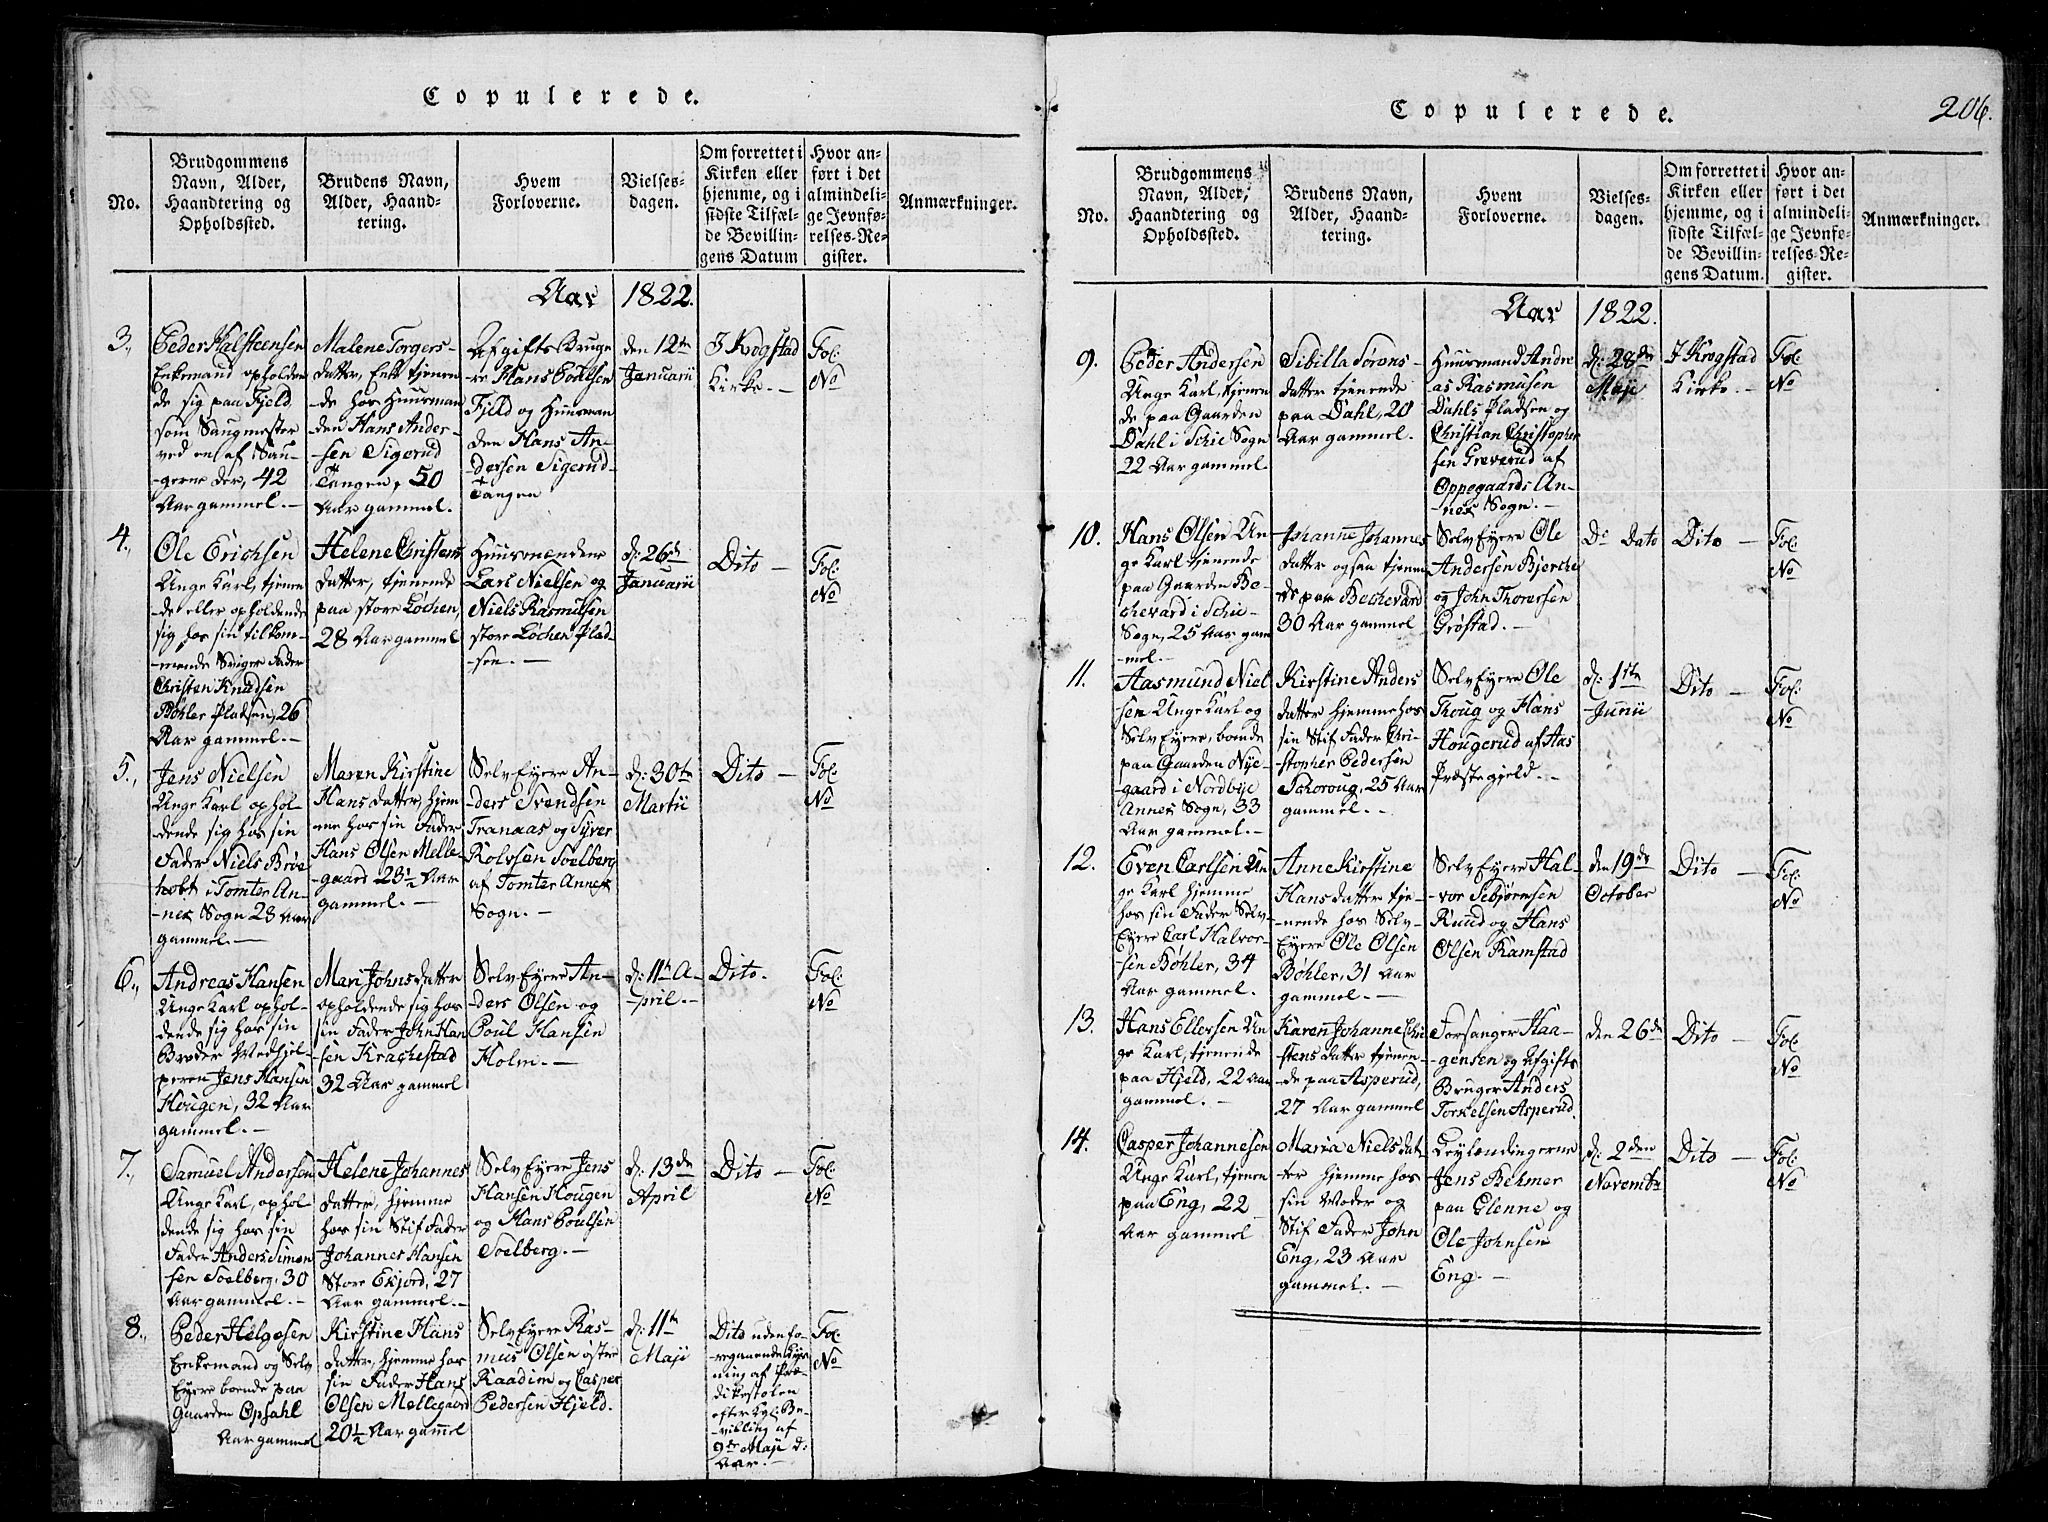 Copulerede.
No.
Brudgommens
Navn, Alder,
Haandtering og
Opholdssted.
Brudens Navn,
Alder, Haand-
tering.
Hvem
Forloverne.
Vielses-
dagen.
Om forrettet i
Kirken eller
hjemme, og i
sidste Tilfæl-
de Bevillin-
gens Datum
Hvor an-
ført i det
almindeli-
ge Jevnfø-
relses-Re-
gister.
Anmærkninger.
Aar 1822.
3.,
Peder Halsteensen
Enkemand opholden
de sig paa Fjeld
som Saugmester
ved en af Sau-
-gerne der, 42
Aar gammel. -
Malene Torgers-
datter, Enke tjenen
-de hos Huusman
den Hans Ander-
sen Sigerud
Tangen, 50
Aar gammel.
Afgifts Bruge
-re Hans Poulsen
Fjeld og Huusman
den Hans An-
dersen Sigerud-
Tangen
den 12te
Januarii
I Krogstad
Kirke. -
Fol:
No
4.,
Ole Erichsen
Unge Karl, tjenen
-de eller opholdende
sig hos sin tilkom-
-mende Sviger Fader
Christen Knudsen
Bøhler Pladsen, 26
Aar gammel. -
Helene Christens
datter, tjenende
paa store Løchen,
28 Aar gammel
Huusmændene
Lars Nielsen og
Niels Rasmusen
store Løchen Plad-
-sen. -
d: 26de
Januarii
Dito -
Fol:
No
5.,
Jens Nielsen
Unge Karl ophol-
dende sig hos sin
Fader Niels Brøe
tvobt i Tomter An-
-nex Sogn 28 Aar
gammel. -
Maren Kirstine
Hans datter, hjem
-me hos sin Fader
Hans Olsen Melle-
-gaard 23½ Aar
gammel. -
Selv Eyere An-
-ders Svendsen
Tranaas og Syver
Rolvsen Soelberg
af Tomter Annex
Sogn. -
d: 30te
Martii
Dito -
Fol:
No
6.,
Andreas Hansen
Unge Karl ophol-
dende sig hos sin
Broder Medhjel-
peren Jens Hansen
Hougen, 32 Aar
gammel. -
Mari Johns datter
opholdende sig hos
sin Fader John Han
-sen Krachestad
32 Aar gammel
Selv Eyere An-
ders Olsen og
Poul Hansen
Holm. -
d: 11te A-
-pril. -
Dito.
Fol:
No
7.,
Samuel Andersen
Unge Karl, ophol
dende sig hos sin
Fader Anders Simon
sen Soelberg, 30
Aar gammel. -
Helene Johannes
datter, hjemme
hos sin Stif Fader
Johannes Hansen
Store Ekjord, 27
Aar gammel. -
Selv Eyere Jens
Hansen Hougen
og Hans Poulsen
Soelberg. -
d: 13de
April
Dito -
Fol:
No
8.,
Peder Helgesen
Enkemand og Selv
Eyere boende paa
Gaarden Opsahl
Aar gammel
Kirstine Hans
datter, hjemme hos
sin Fader Hans
Olsen Mellegaard
20½ Aar gammel
Selv Eyere Ras-
mus Olsen østre
Raadim og Casper
Pedersen Hjeld.
d: 11te
Maji
Dito uden fo-
-regaaende Lys
ning af Præ-
dikestolen
efter Kgl: Be-
-villing af
9de Maji d:
Aar. -
Fol:
No
Copulerede.
206.
No.
Brudgommens
Navn, Alder,
Haandtering og
Opholdssted.
Brudens Navn,
Alder, Haand-
tering.
Hvem
Forloverne.
Vielses-
dagen.
Om forrettet i
Kirken eller
hjemme, og i
sidste Tilfæl-
de Bevillin-
gens Datum.
Hvor an-
ført i det
almindeli-
ge Jevnfø-
relses-Re-
gister.
Anmærkninger.
Aar 1822.
9.
Peder Andersen
Unge Karl, tjenen
de paa Gaarden
Dahl i Schie Sogn
22 Aar gammel
Sibilla Sørens-
datter tjenende
paa Dahl, 20
Aar gammel.
Huusmand Andre
as Rasmusen
Dahls Pladsen og
Christian Christopher
sen Greverud af
Oppegaards An-
-nex Sogn. -
d: 28de
Maji
I Krogstad
Kirke. -
Fol:
No
10.
Hans Olsen Un-
ge Karl tjenende
paa Gaarden Be-
chevard i Schie-
Sogn, 25 Aar gam
-mel. -
Johanne Johannes
datter ogsaa tjenen
de paa Bechevard
30 Aar gammel
Selv Eyere Ole
Andersen Bjerche
og John Thorersen
Grøstad. -
De Dato
Dito -
Fol:
No
11.
Aasmund Niel
sen Unge Karl og
Selv Eyere, boende
paa Gaarden Nye-
-gaard i Nordbye
Annex Sogn, 33
Aar gammel. -
Kirstine Anders
datter hjemme hos
sin Stif Fader Chri-
stopher Pedersen
Schoroug, 25 Aar
gammel. -
Selv Eyere Ole
Thoug og Hans
Hougerud af Aas
Præstegjeld. -
d: 1ste
Junii
Dito -
Fol:
No
12.
Even Carlsen Un
ge Karl hjemme
hos sin Fader Selv
Eyere Carl Halvor-
-sen Bøhler, 34
Aar gammel.
Anne Kirstine
Hans datter tje-
-nende hos Selv-
Eyere Ole Olsen
Bøhler, 31 Aar
gammel. -
Selv Eyere Hal-
-vor Sebjørnsen
Ruud og Hans
Olsen Ramstad
den 19de
October
Dito -
Fol:
No
13.
Hans Ellefsen Un
ge Karl, tjenende
paa Hjeld, 22 Aar
gammel. -
Karen Johanne Chri
stens datter tjenen-
-de paa Asperud,
27 Aar gammel
Forsanger Haa-
-gensen og Afgifts
Bruger Anders
Torkelsen Asperud.
den 26de
Dito -
Fol:
No
14.
Casper Johannesen
Unge Karl, tjenen
paa Eng, 22
Aar gammel
Maria Niels dat
ter hjemme hos
sin Moder og
Stif Fader John
Eng, 23 Aar
gammel. -
Leylændingerne
Jens Behmer
paa Glenne og
Ole Johnsen
Eng. -
d: 2den
Novembr
Dito -
Fol:
No